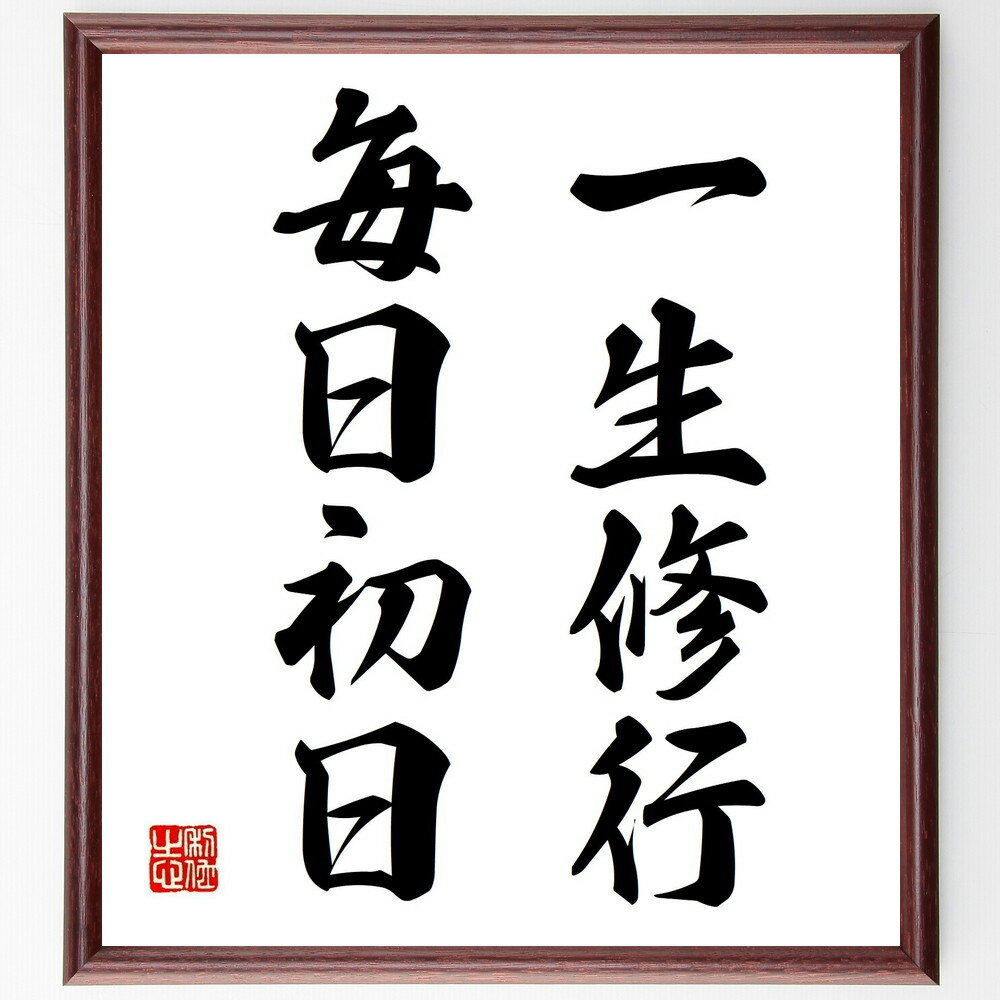 一生修行
毎日初日